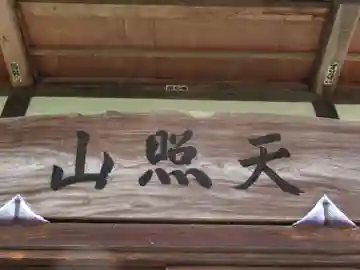 天照山